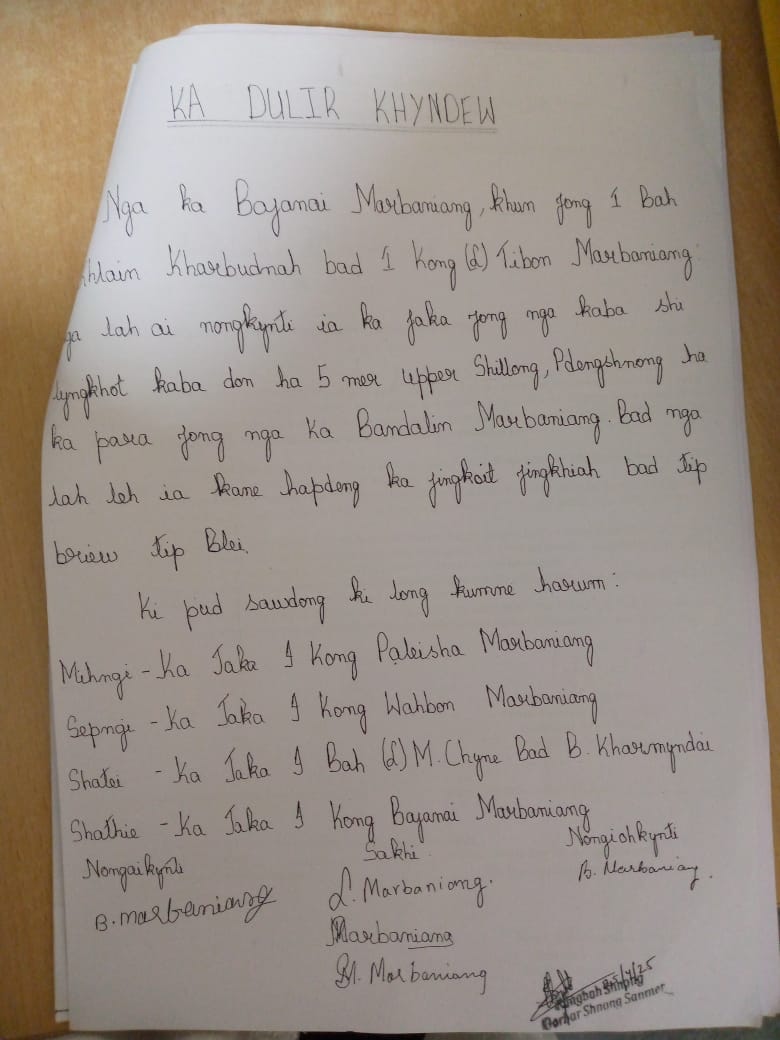 KA DULIR KHYNDEW
Nga ka Bajanai Marbaniang, khun jong I Bah
Khlain Kharbudnah bad I Kong (L) Tibon Marbaniang.
nga lah ai nongkynti ia ka jaka jong nga kaba shi
lyngkhot kaba don ha 5 mer upper Shillong, Pdengshnong ha
ka para jong nga Ka Bandalin Marbaniang. Bad nga
lah leh ia kane hapdeng ka jingkoit jingkhiah bad tip
briew tip Blei.
Ki pud sawdong ki long kumne harum:
Mihngi - Ka Jaka I Kong Paleisha Marbaniang
Sepngi - Ka Jaka I Kong Wahbon Marbaniang
Shatei - Ka Jaka I Bah (L) M. Chyne Bad B. Kharmyndai
Shathie - Ka Jaka I Kong Bajanai Marbaniang
Nongaikynti Sakhi Nongiohkynti
B. Marbaniang L. Marbaniang. B. Marbaniang.
Marbaniang
M. Marbaniang
25/4/25
Rangbah Shnong
Dorbar Shnong Sanmer